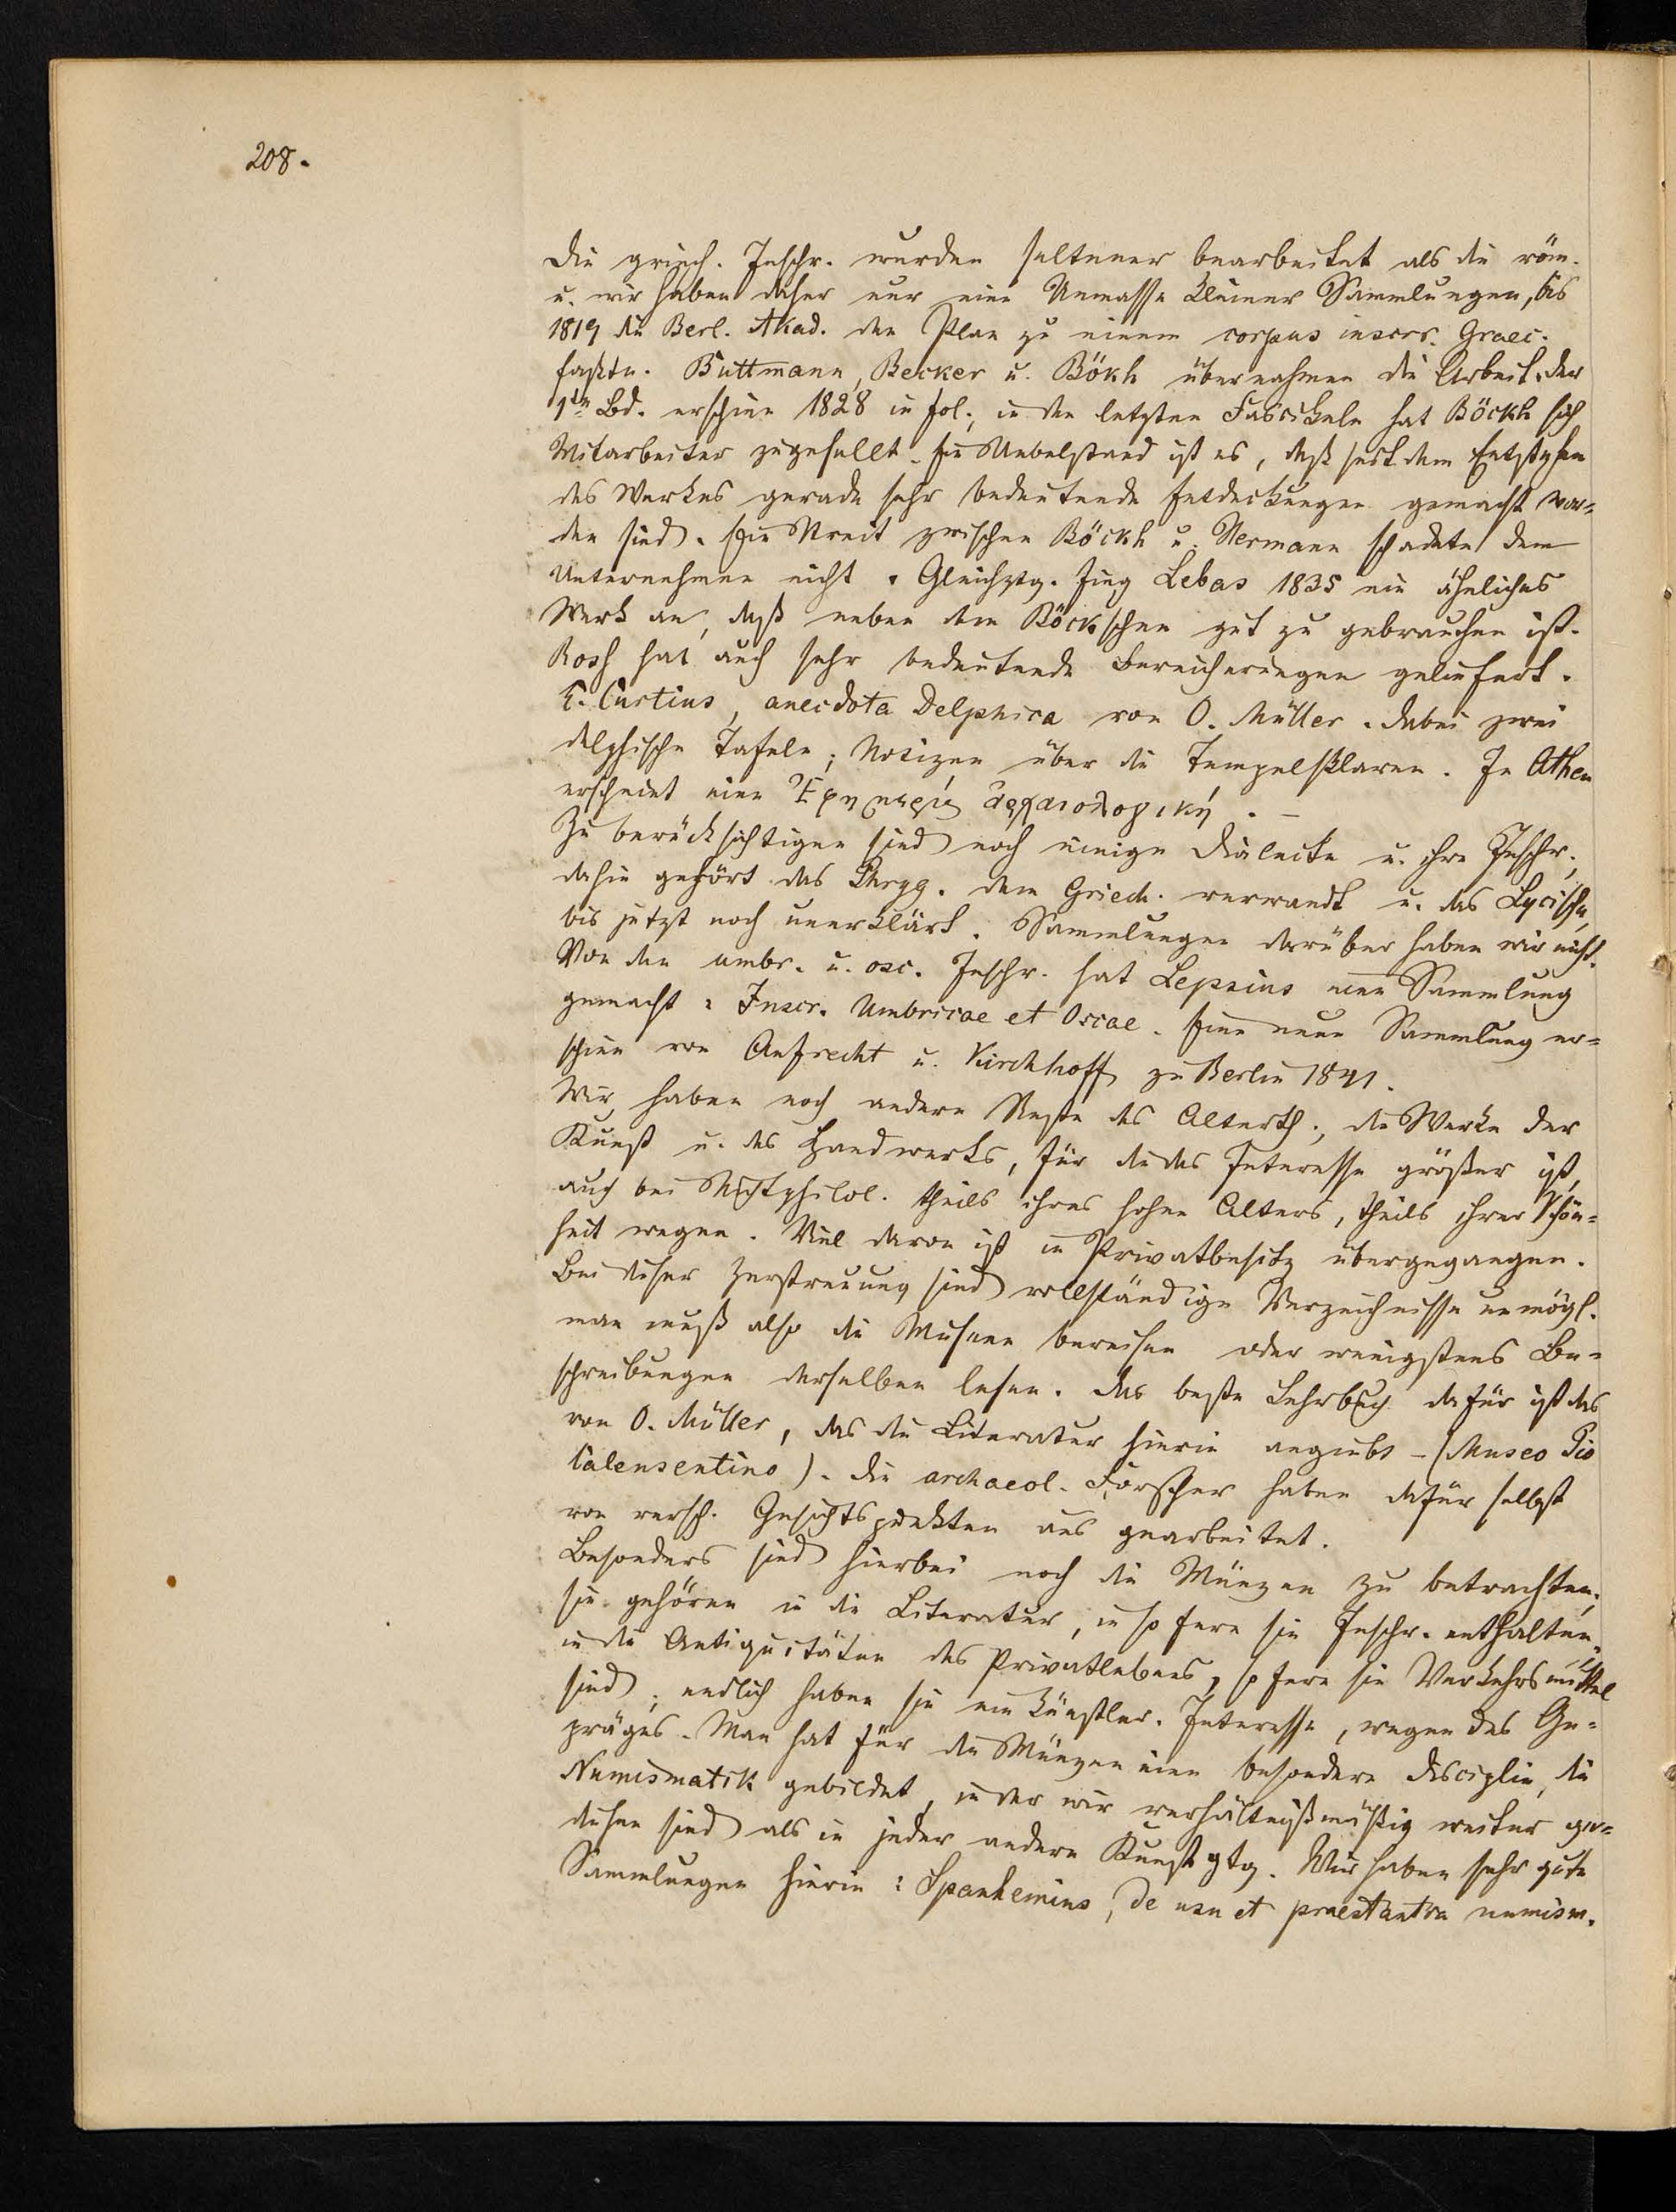 208.
Die griech. Inschr. wurden seltener bearbeitet als die röm.
u. wir haben daher nur eine Unmasse kleiner Sammlungen, bis
1819 die Berl. Akad. den Plan zu einem corpus inscrr. Graec.
faßte. Buttmann, Becker u. Bökh übernahmen die Arbeit, der
1te Bd. erschien 1828 in fol., in den letzten Fascikeln hat Böckh sich
Mitarbeiter zugesellt. Ein Uebelstand ist es, daß seit dem Entstehen
des Werkes gerade sehr bedeutende Entdeckungen gemacht wor=
den sind. Ein Streit zwischen Böckh u. Hermann schadete dem
Unternehmen nicht. Gleichztg. fing Lebas 1835 ein ähnliches
Werk an, daß neben dem Böckschen gut zu gebrauchen ist.
Roß hat auch sehr bedeutende Bereicherungen geliefert.
E. Curtius, anecdota Delphica von O. Müller. dabei zwei
delphische Tafeln; Notizen über die Tempelsklaven. In Athen
erscheint eine Ἐφημερὶς ἀρχαιολογική. –
Zu berücksichtigen sind noch einige Dialecte u. ihre Inschr.,
dahin gehört das Phryg. dem Griech. verwandt u. das Lycische,
bis jetzt noch unerklärt. Sammlungen darüber haben wir nicht.
Von den umbr. u. osc. Inschr. hat Lepsius eine Sammlung
gemacht: Inscr. Umbricae et Oscae. Eine neue Sammlung er=
schien von Aufrecht u. Kirchhoff zu Berlin 1841.
Wir haben noch andere Reste des Alterth., die Werke der
Kunst u. des Handwerks, für die das Interesse größer ist,
auch bei Nichtphilol. theils ihres hohen Alters, theils ihrer Schön=
heit wegen. Viel davon ist in Privatbesitz übergegangen.
Bei dieser Zerstreuung sind vollständige Verzeichnisse unmögl.
man muß also die Museen bereisen oder wenigstens Be=
schreibungen derselben lesen. Das beste Lehrbuch dafür ist das
von O. Müller, das die Literatur hierin angiebt – (Museo Pio
Calensentino). Die archaeol. Forscher haben dafür selbst
von versch. Gesichtspunkten aus gearbeitet.
Besonders sind hierbei noch die Münzen zu betrachten,
sie gehören in die Literatur, in so fern sie Inschr. enthalten,
in die Antiquitäten des Privatlebens, so fern sie Verkehrsmittel
sind; endlich haben sie ein künstler. Interesse, wegen des Ge=
präges. Man hat für die Münzen eine besondere Disciplin, die
Numismatik gebildet, in der wir verhältnißmäßig weiter ge=
diehen sind als in jeder andern Kunstgtg. Wir haben sehr gute
Sammlungen hierin: Spanhemius, De usu et praestantia numism.